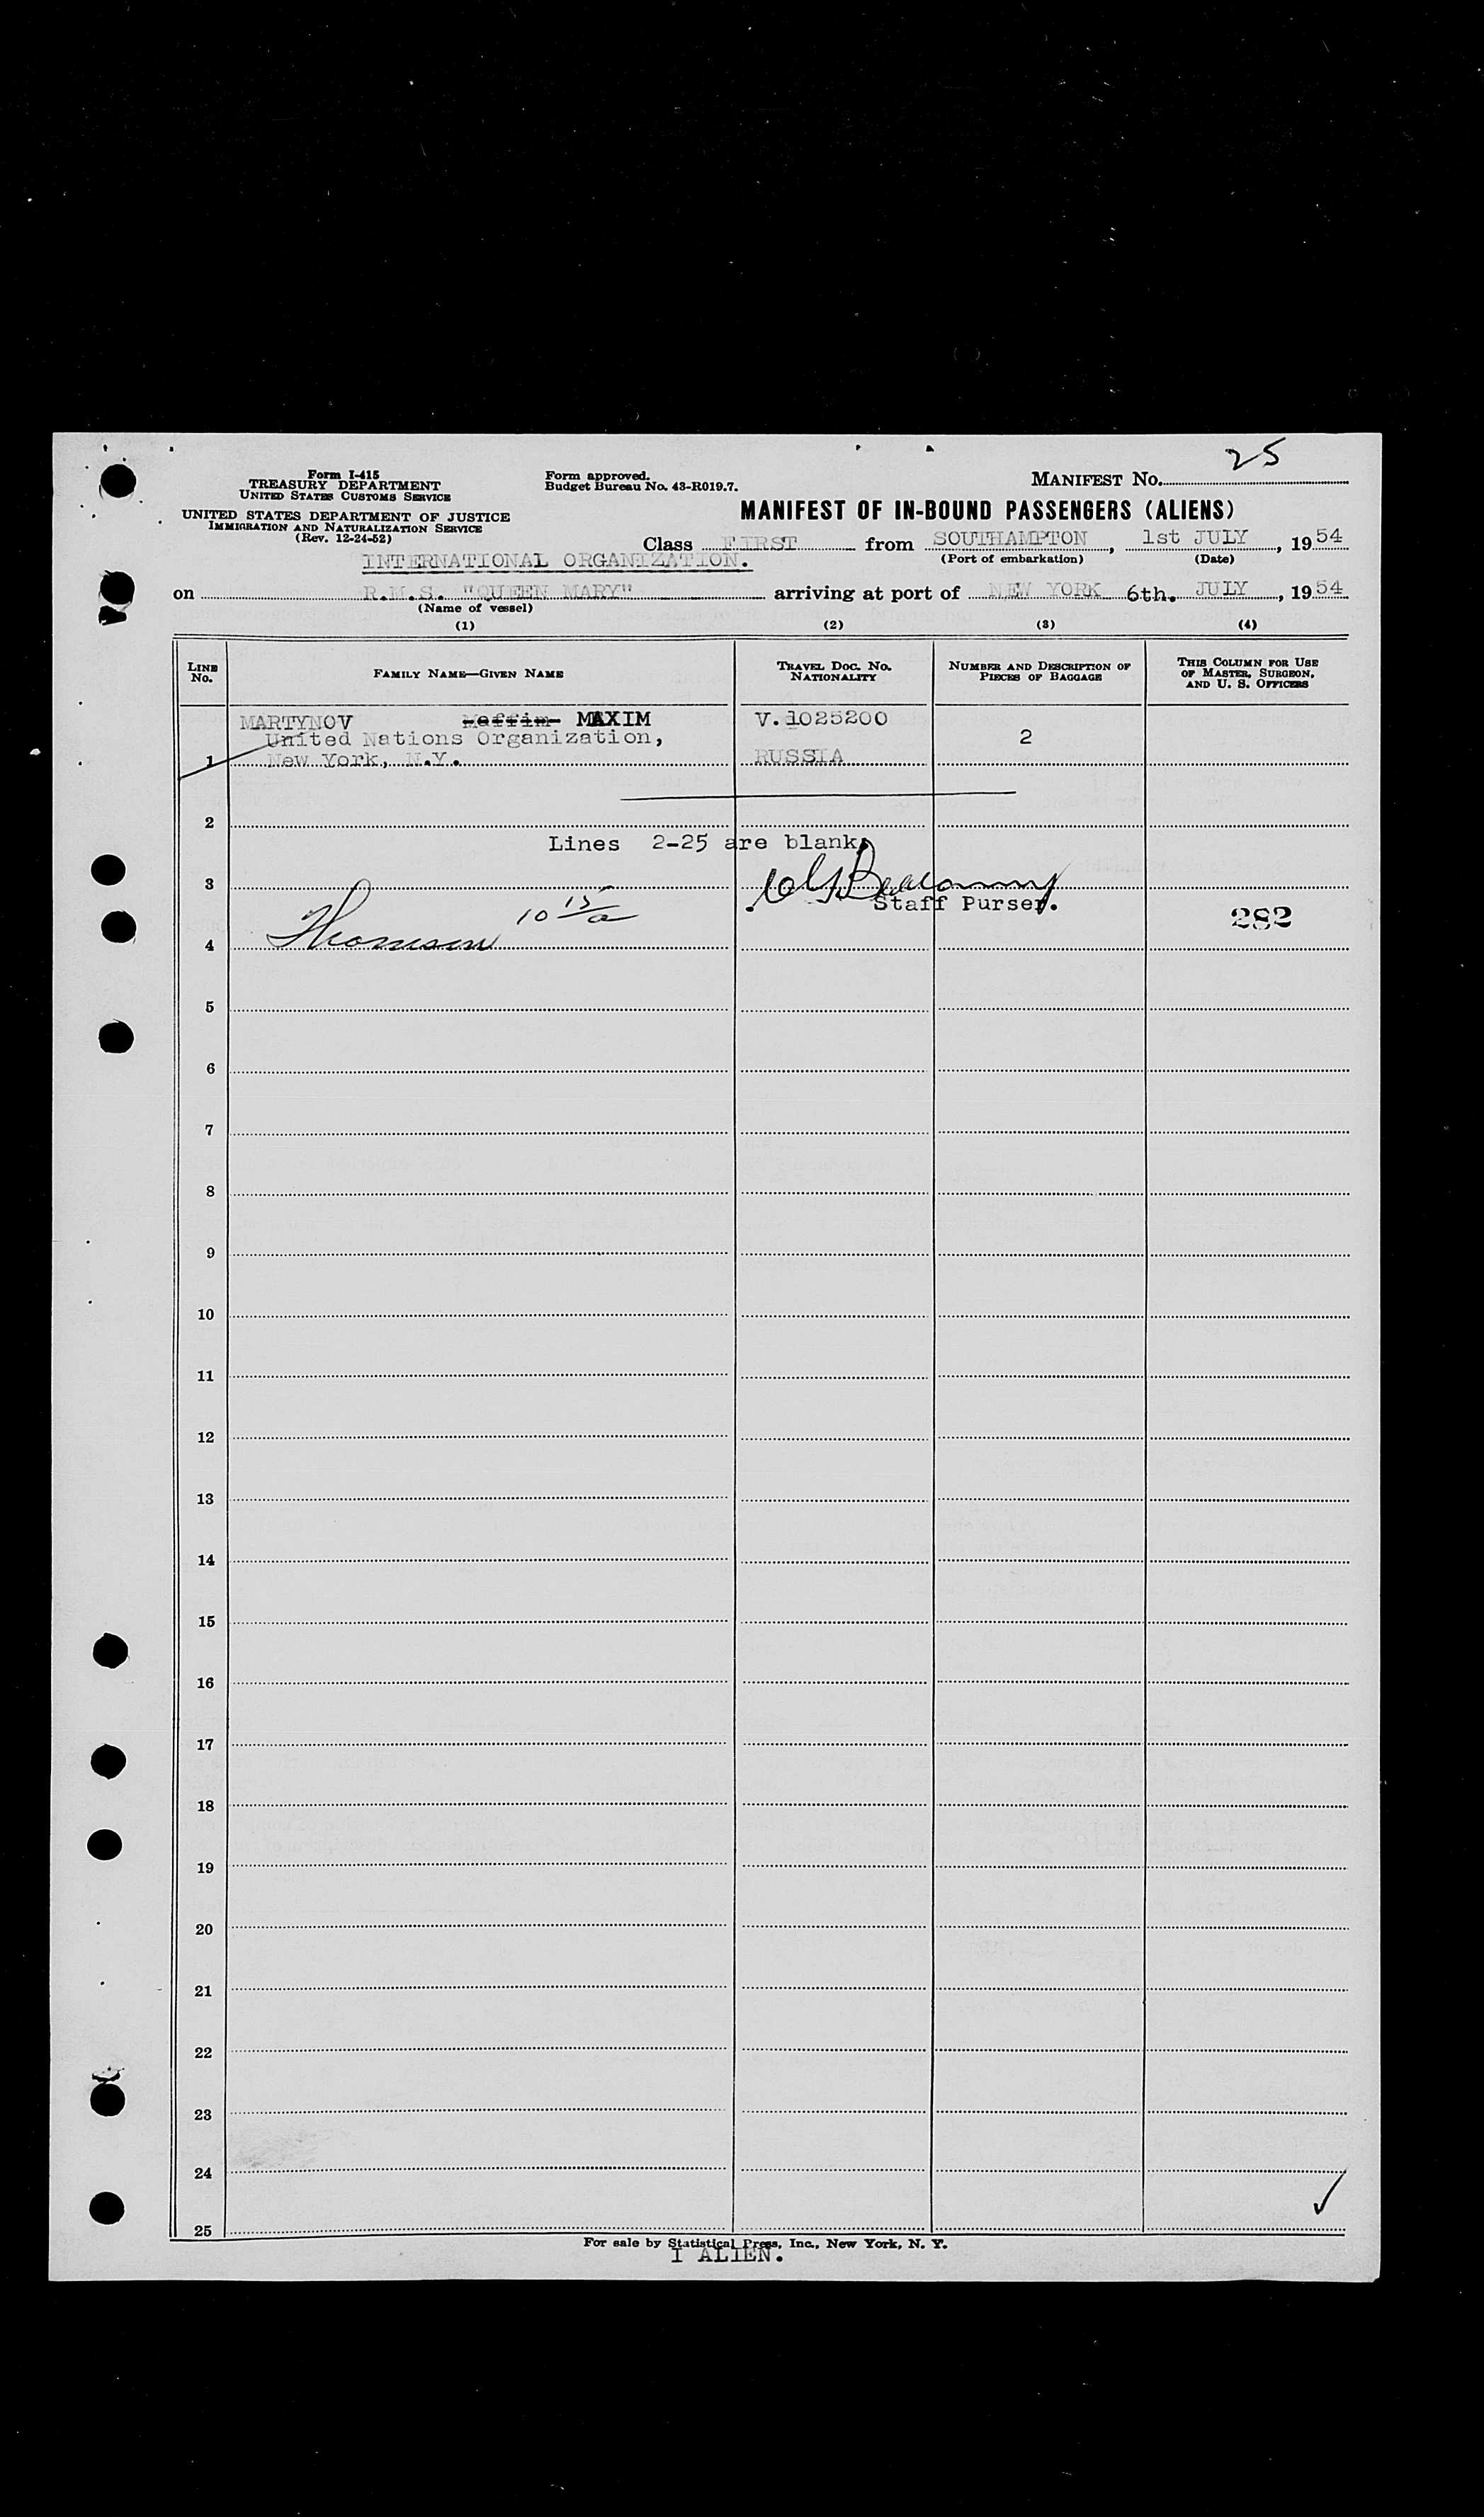 25
Form I-415
TREASURY DEPARTMENT
UNITED STATES CUSTOMS SERVICE
UNITED STATES DEPARTMENT OF JUSTICE
IMMIGRATION AND NATURALIZATION SERVICE
(Rev. 12-24-52)
Form approved.
Budget Bureau No. 43-R019.7.
MANIFEST No.
MANIFEST OF IN-BOUND PASSENGERS (ALIENS)
Class FIRST from SOUTHAMPTON, 1st JULY, 1954
(Port of embarkation) (Date)
INTERNATIONAL ORGANIZATION.
on R.M.S. "QUEEN MARY" arriving at port of NEW YORK 6th. JULY, 1954
(Name of vessel)
(1) (2) (3) (4)
LINE No. FAMILY NAME—GIVEN NAME TRAVEL DOC. NO. NATIONALITY NUMBER AND DESCRIPTION OF PIECES OF BAGGAGE THIS COLUMN FOR USE OF MASTER, SURGEON, AND U. S. OFFICERS
MARTYNOV Maffim MAXIM V.1025200
United Nations Organization, 2
1 New York, N.Y. RUSSIA
2
Lines 2-25 are blank.
3
Staff Purser.
10 15/a
282
4 Thomson
5
6
7
8
9
10
11
12
13
14
15
16
17
18
19
20
21
22
23
24
25
For sale by Statistical Press, Inc., New York, N. Y.
1 ALIEN.